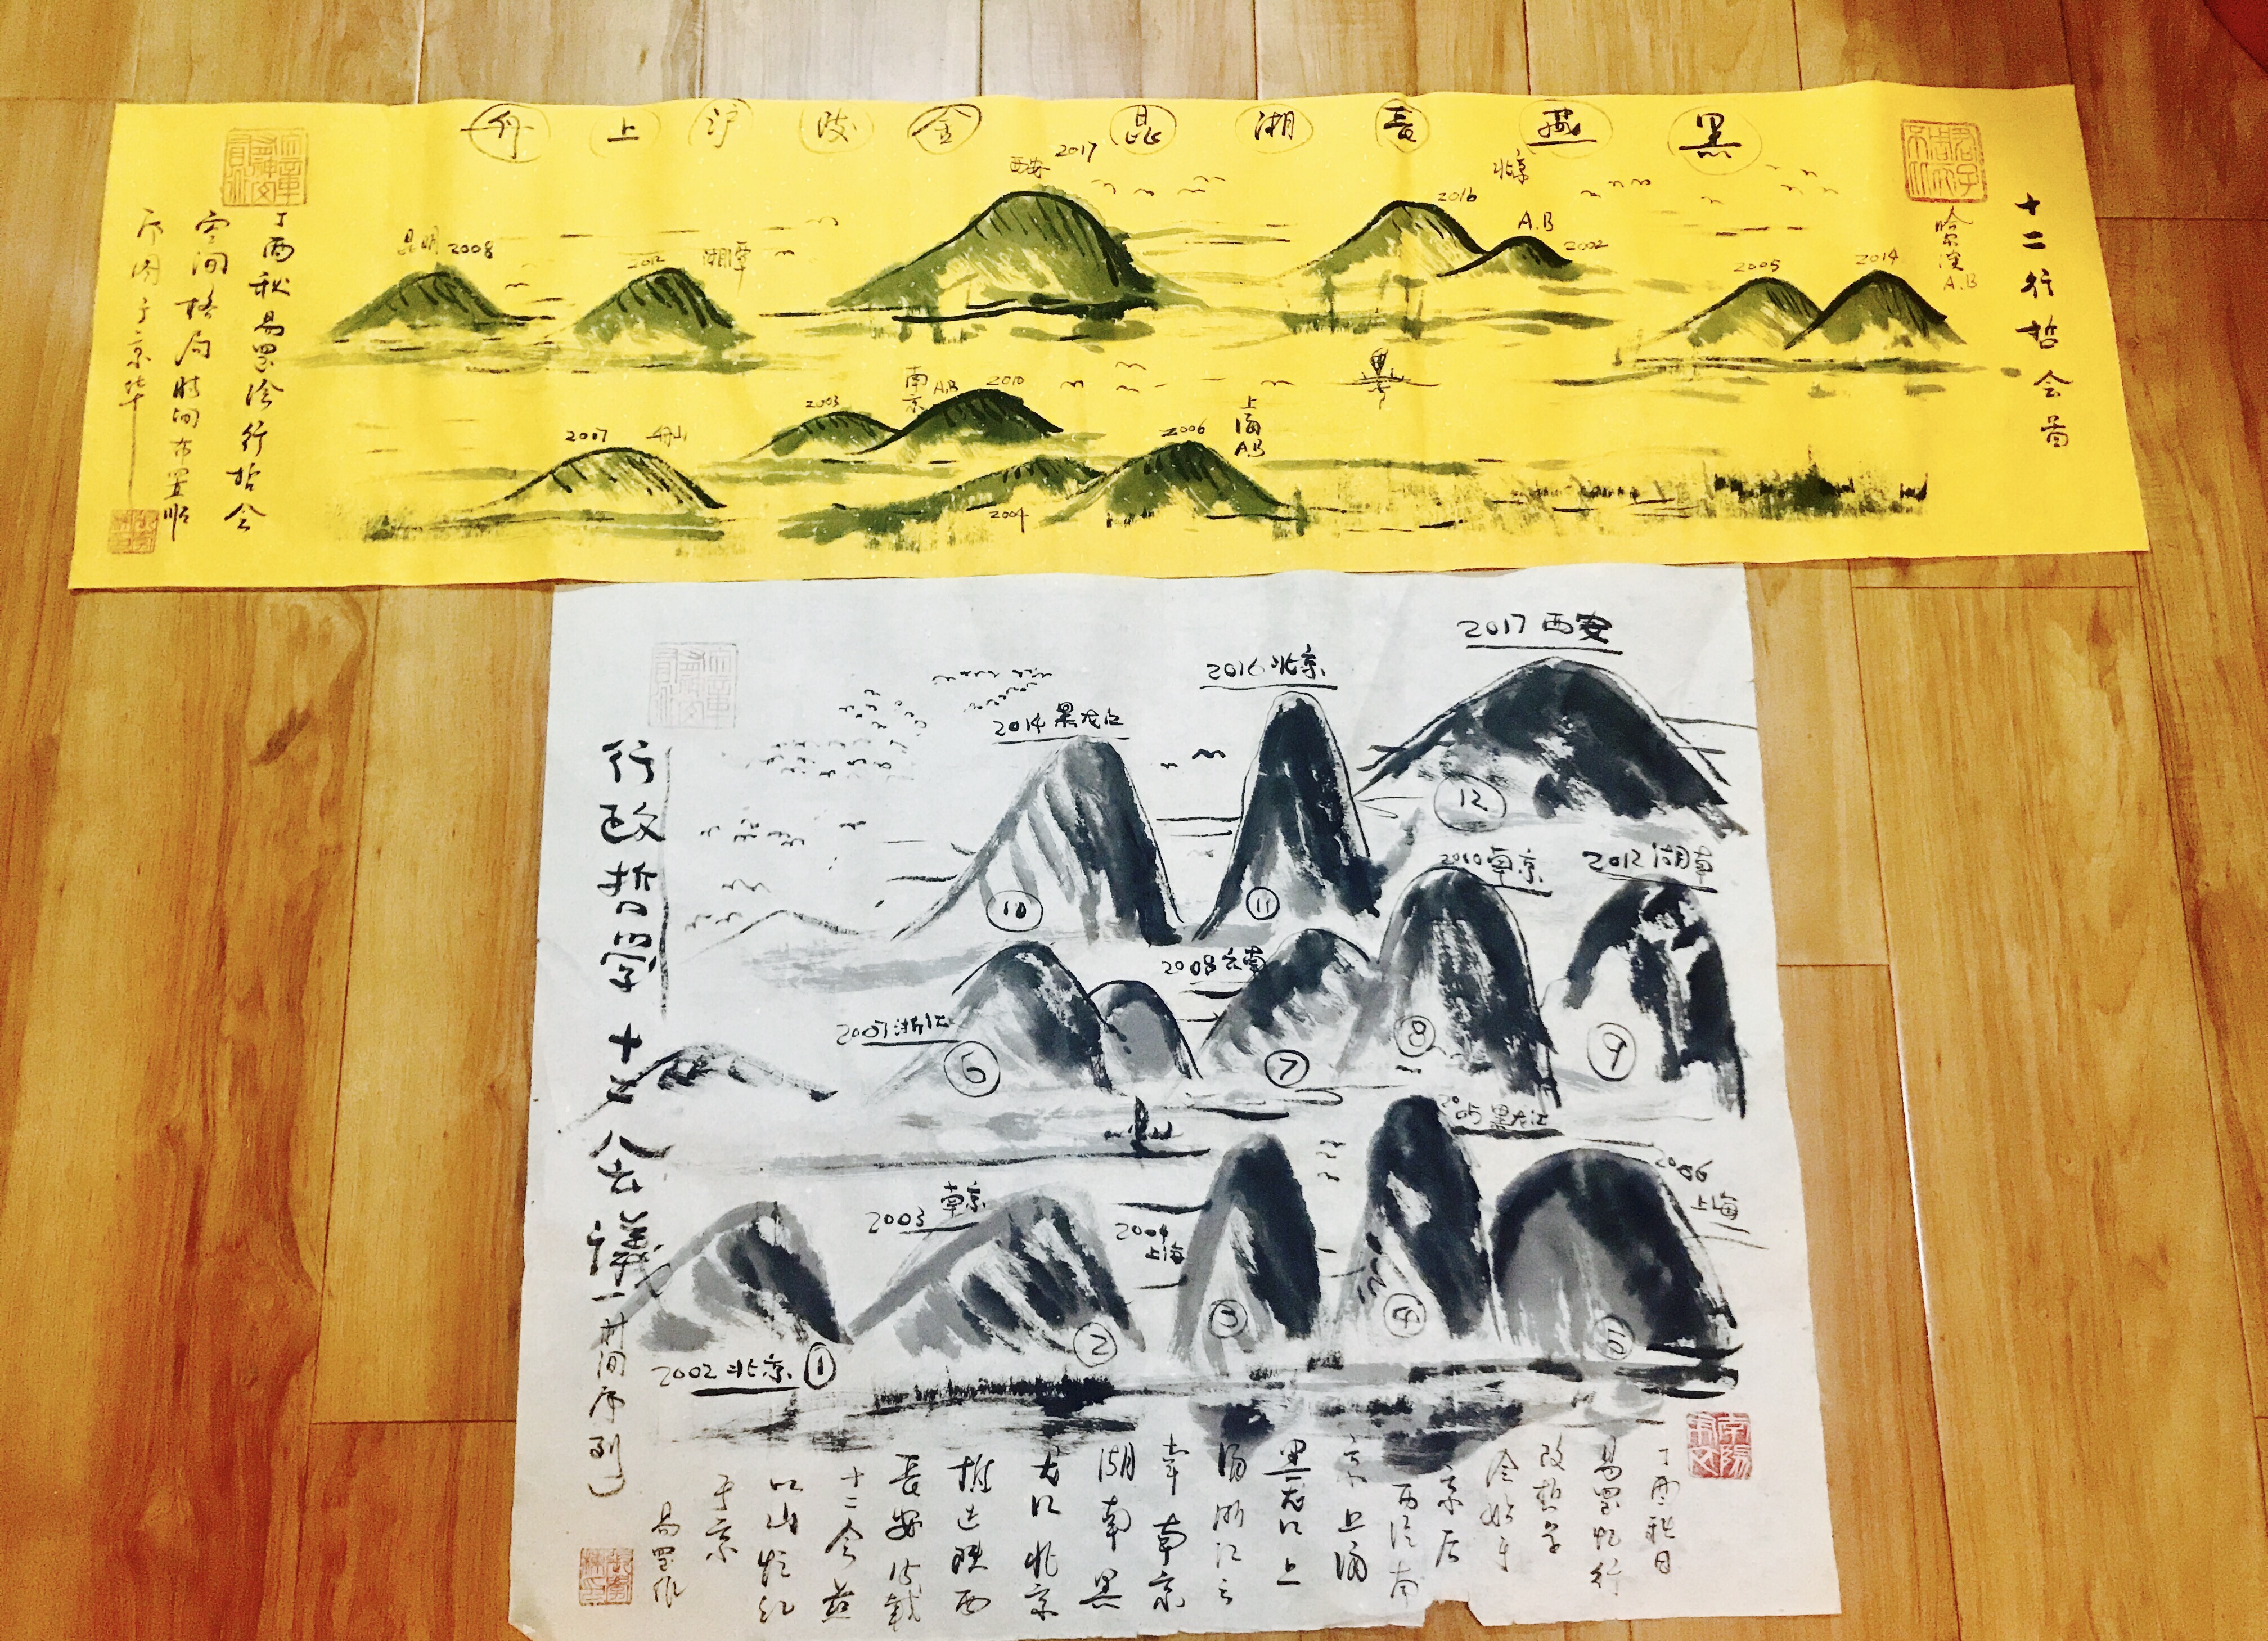 舟 上 沪 陵 金 昆 湖 長 燕 黑
十二行哲会图
哈尔滨
A.B
2014
2005
北京
A.B
2016
2002
西安 2017
湖潭
2012
昆明 2008
南京 A.B
2003
2010
上海
A.B
2006
2004
舟山
2007
丁酉秋易墨绘行哲会
空间格局时间布置顺
序图于京华
2017 西安
2016 北京
2014 黑龙江
12
11
10
2012 湖南
2010 南京
2008 云南
2007 浙江
9
8
7
6
2006
上海
2005 黑龙江
2004
上海
2003 南京
2002 北京 1
5
4
3
2
行政哲学十二会议(时间序列)
丁酉秋日
易墨忆行
政哲学
会始于
京后
西经南
京上海
黑龙江上
海浙江云
南南京
湖南黑
龙江北京
推进陕西
長安
十二会
以山
于京
易墨作